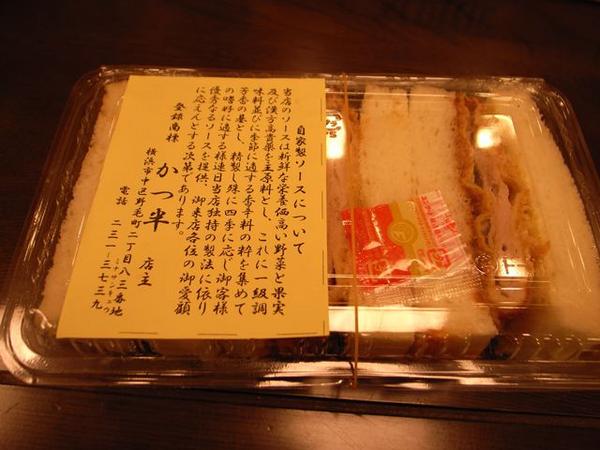 自家製ソースについて
当店のソースは新鮮な栄養価高い野菜と果実
及び漢方高貴薬を主原料とし、これに一級調
味料並びに季節に適する香辛料の粋を集めて
芳香の基とし、精製し殊に四季に応じ御客様
の嗜好に適する様連日当店独特の製法に依り
優秀なるソースを提供、御来店各位の御愛顧
に応えんとする次第であります。
登録商標
かつ半
店主
横浜市中区野毛町二丁目八三番地
電話
二三一-三七三九